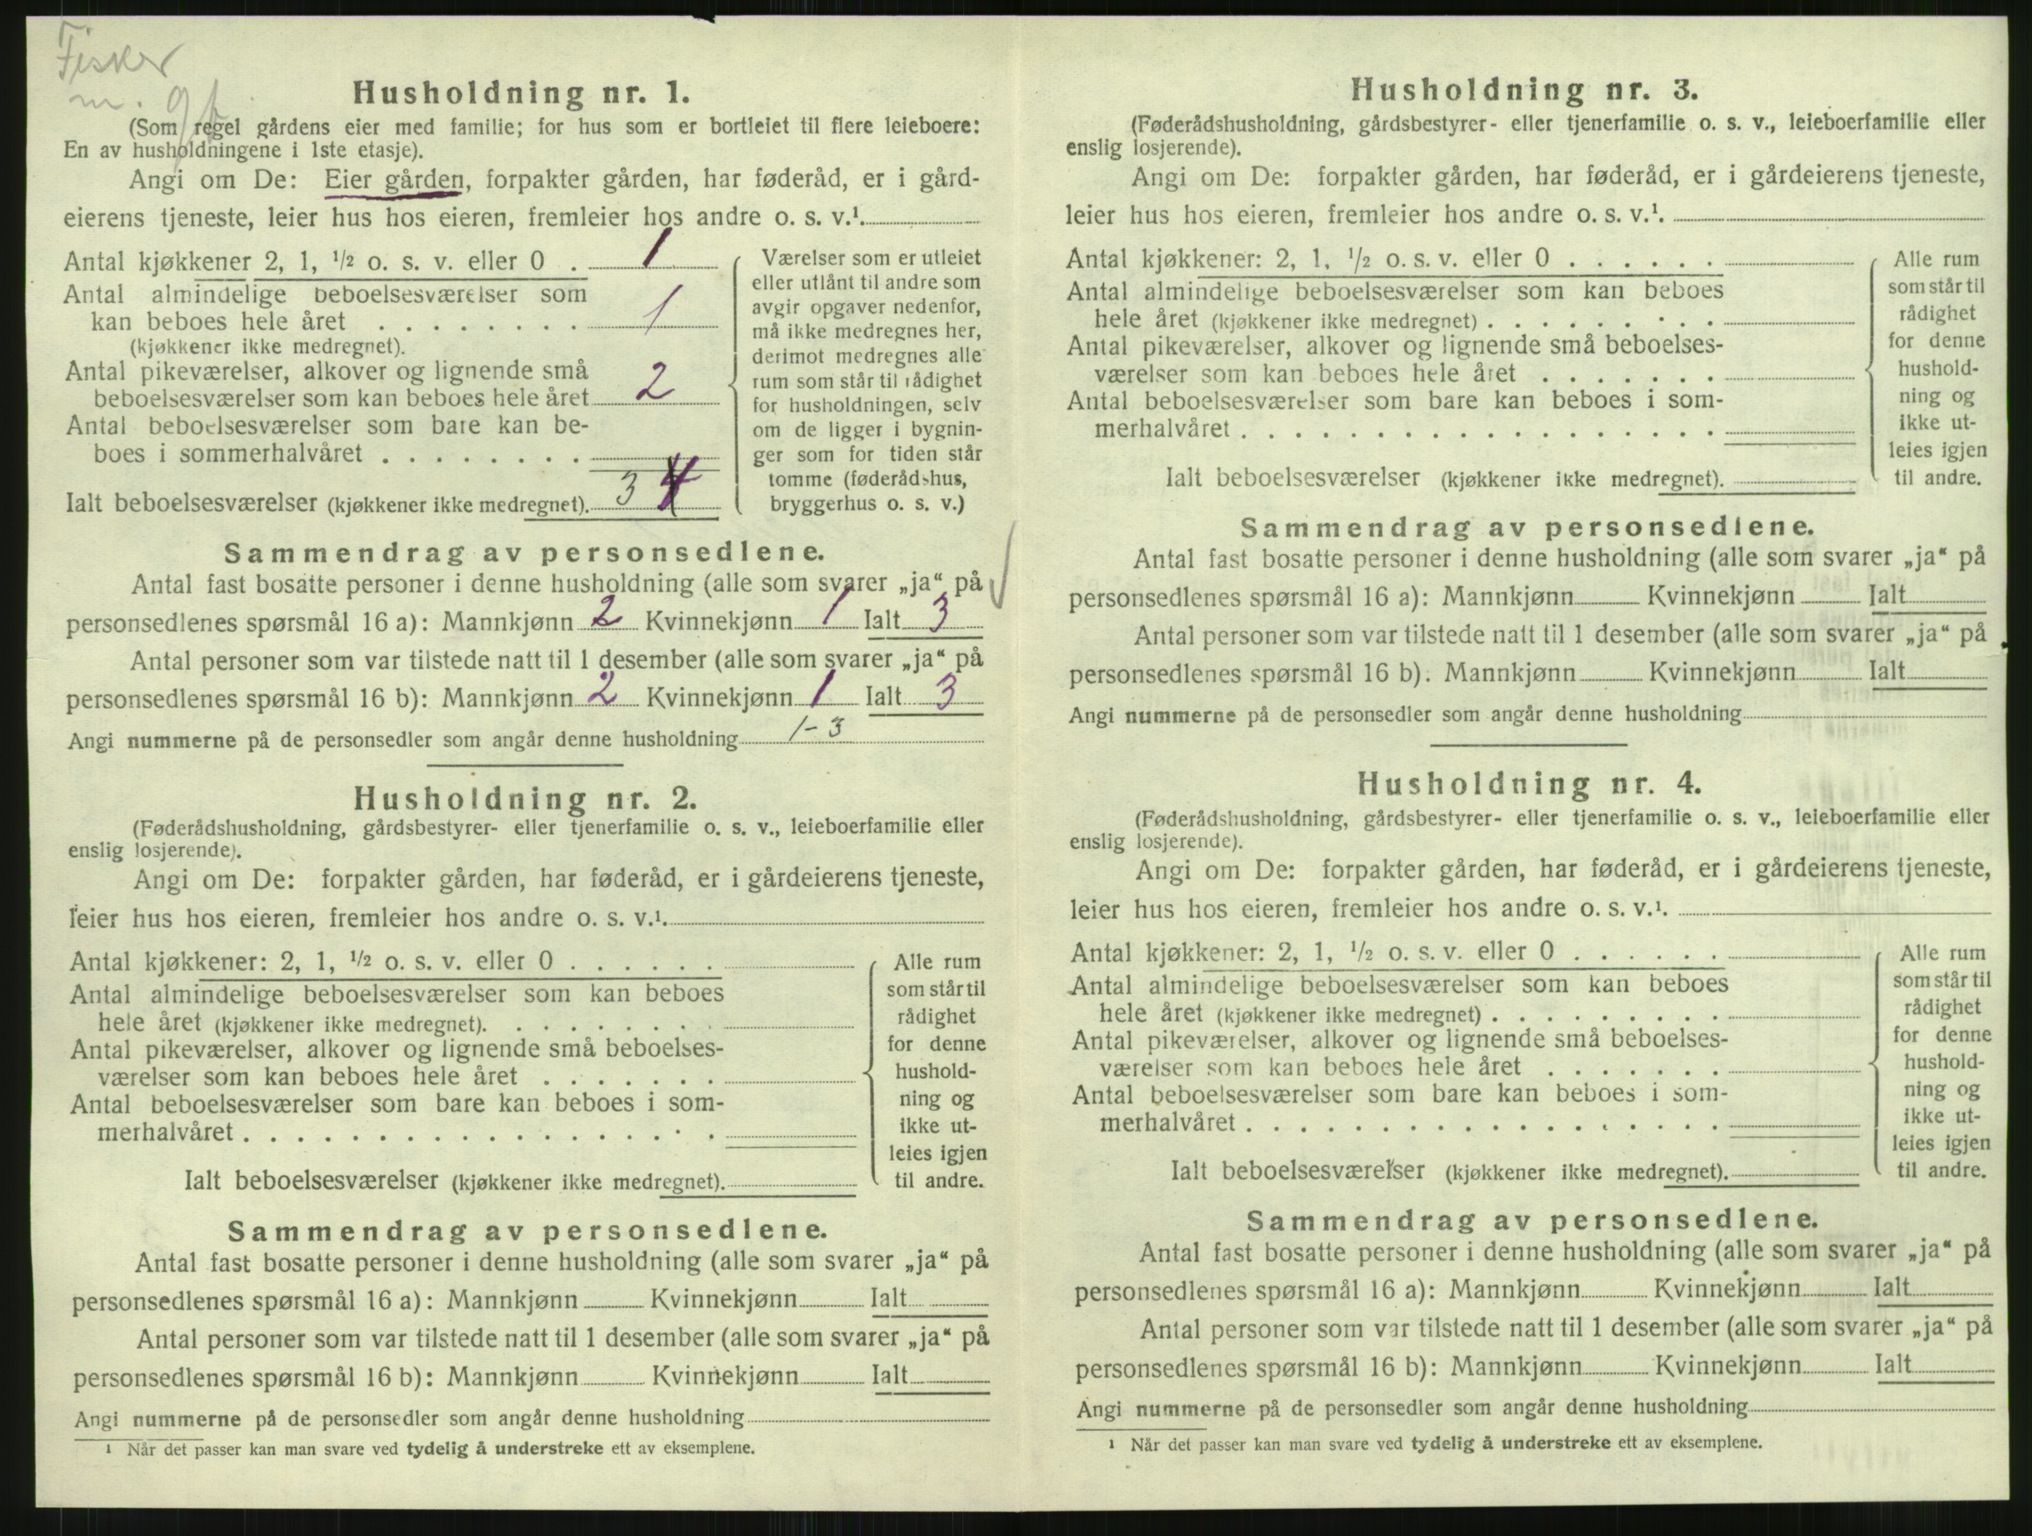 Fisker
m. gbr.
Husholdning nr. 1.
(Som regel gårdens eier med familie; for hus som er bortleiet til flere leieboere:
En av husholdningene i 1ste etasje).
Angi om De: Eier gården, forpakter gården, har føderåd, er i gård-
eierens tjeneste, leier hus hos eieren, fremleier hos andre o. s. v.¹.
Antal kjøkkener 2, 1, ½ o. s. v. eller 0 . 1
Antal almindelige beboelsesværelser som
kan beboes hele året . . . . . . . . 1
(kjøkkener ikke medregnet).
Antal pikeværelser, alkover og lignende små
beboelsesværelser som kan beboes hele året 2
Antal beboelsesværelser som bare kan be-
boes i sommerhalvåret . . . . . . . .
Ialt beboelsesværelser (kjøkkener ikke medregnet). 3 4
Værelser som er utleiet
eller utlånt til andre som
avgir opgaver nedenfor,
må ikke medregnes her,
derimot medregnes alle
rum som står til rådighet
for husholdningen, selv
om de ligger i bygnin-
ger som for tiden står
tomme (føderådshus,
bryggerhus o. s. v.)
Sammendrag av personsedlene.
Antal fast bosatte personer i denne husholdning (alle som svarer „ja“ på
personsedlenes spørsmål 16 a): Mannkjønn 2 Kvinnekjønn 1 Ialt 3
Antal personer som var tilstede natt til 1 desember (alle som svarer „ja“ på
personsedlenes spørsmål 16 b): Mannkjønn 2 Kvinnekjønn 1 Ialt 3
Angi nummerne på de personsedler som angår denne husholdning 1-3
Husholdning nr. 2.
(Føderådshusholdning, gårdsbestyrer- eller tjenerfamilie o. s. v., leieboerfamilie eller
enslig losjerende).
Angi om De: forpakter gården, har føderåd, er i gårdeierens tjeneste,
leier hus hos eieren, fremleier hos andre o. s. v.¹.
Antal kjøkkener: 2, 1, ½ o. s. v. eller 0 . . . . . .
Antal almindelige beboelsesværelser som kan beboes
hele året (kjøkkener ikke medregnet). . . . . . . . .
Antal pikeværelser, alkover og lignende små beboelses-
værelser som kan beboes hele året . . . . . . .
Antal beboelsesværelser som bare kan beboes i som-
merhalvåret . . . . . . . . . . . . . . . . . .
Ialt beboelsesværelser (kjøkkener ikke medregnet).
Alle rum
som står til
rådighet
for denne
hushold-
ning og
ikke ut-
leies igjen
til andre.
Sammendrag av personsedlene.
Antal fast bosatte personer i denne husholdning (alle som svarer „ja“ på
personsedlenes spørsmål 16 a): Mannkjønn Kvinnekjønn Ialt
Antal personer som var tilstede natt til 1 desember (alle som svarer „ja“ på
personsedlenes spørsmål 16 b): Mannkjønn Kvinnekjønn Ialt
Angi nummerne på de personsedler som angår denne husholdning
¹ Når det passer kan man svare ved tydelig å understreke ett av eksemplene.
Husholdning nr. 3.
(Føderådshusholdning, gårdsbestyrer- eller tjenerfamilie o. s. v., leieboerfamilie eller
enslig losjerende).
Angi om De: forpakter gården, har føderåd, er i gårdeierens tjeneste,
leier hus hos eieren, fremleier hos andre o. s. v.¹.
Antal kjøkkener: 2, 1, ½ o. s. v. eller 0 . . . . . .
Antal almindelige beboelsesværelser som kan beboes
hele året (kjøkkener ikke medregnet) . . . . . . . . .
Antal pikeværelser, alkover og lignende små beboelses-
værelser som kan beboes hele året . . . . . . .
Antal beboelsesværelser som bare kan beboes i som-
merhalvåret . . . . . . . . . . . . . . . . . .
Ialt beboelsesværelser (kjøkkener ikke medregnet).
Alle rum
som står til
rådighet
for denne
hushold-
ning og
ikke ut-
leies igjen
til andre.
Sammendrag av personsedlene.
Antal fast bosatte personer i denne husholdning (alle som svarer „ja“ på
personsedlenes spørsmål 16 a): Mannkjønn Kvinnekjønn Ialt
Antal personer som var tilstede natt til 1 desember (alle som svarer „ja“ på
personsedlenes spørsmål 16 b). Mannkjønn Kvinnekjønn Ialt
Angi nummerne på de personsedler som angår denne husholdning
Husholdning nr. 4.
(Føderådshusholdning, gårdsbestyrer- eller tjenerfamilie o. s. v., leieboerfamilie eller
enslig losjerende).
Angi om De: forpakter gården, har føderåd, er i gårdeierens tjeneste,
leier hus hos eieren, fremleier hos andre o. s. v.¹.
Antal kjøkkener: 2, 1, ½ o. s. v. eller 0 . . . . . .
Antal almindelige beboelsesværelser som kan beboes
hele året (kjøkkener ikke medregnet) . . . . . . . . .
Antal pikeværelser, alkover og lignende små beboelses-
værelser som kan beboes hele året . . . . . . .
Antal beboelsesværelser som bare kan beboes i som-
merhalvåret . . . . . . . . . . . . . . . . . .
Ialt beboelsesværelser (kjøkkener ikke medregnet).
Alle rum
som står til
rådighet
for denne
hushold-
ning og
ikke ut-
leies igjen
til andre.
Sammendrag av personsedlene.
Antal fast bosatte personer i denne husholdning (alle som svarer „ja“ på
personsedlenes spørsmål 16 a): Mannkjønn Kvinnekjønn Ialt
Antal personer som var tilstede natt til 1 desember (alle som svarer „ja“ på
personsedlenes spørsmål 16 b): Mannkjønn Kvinnekjønn Ialt
Angi nummerne på de personsedler som angår denne husholdning
¹ Når det passer kan man svare ved tydelig å understreke ett av eksemplene.